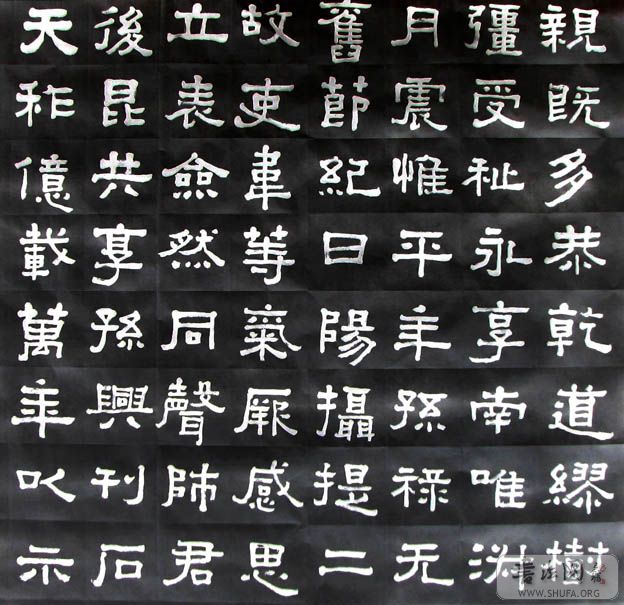 天祚億載萬年以示
後昆共享孫興刊石
立表僉然同聲師君
故吏韋等氣厥感思
舊節紀日陽攝提二
月震惟平年孫祿无
彊受祉永享南唯
親既多恭乾道繆樹
书法图库
WWW.SHUFA.ORG